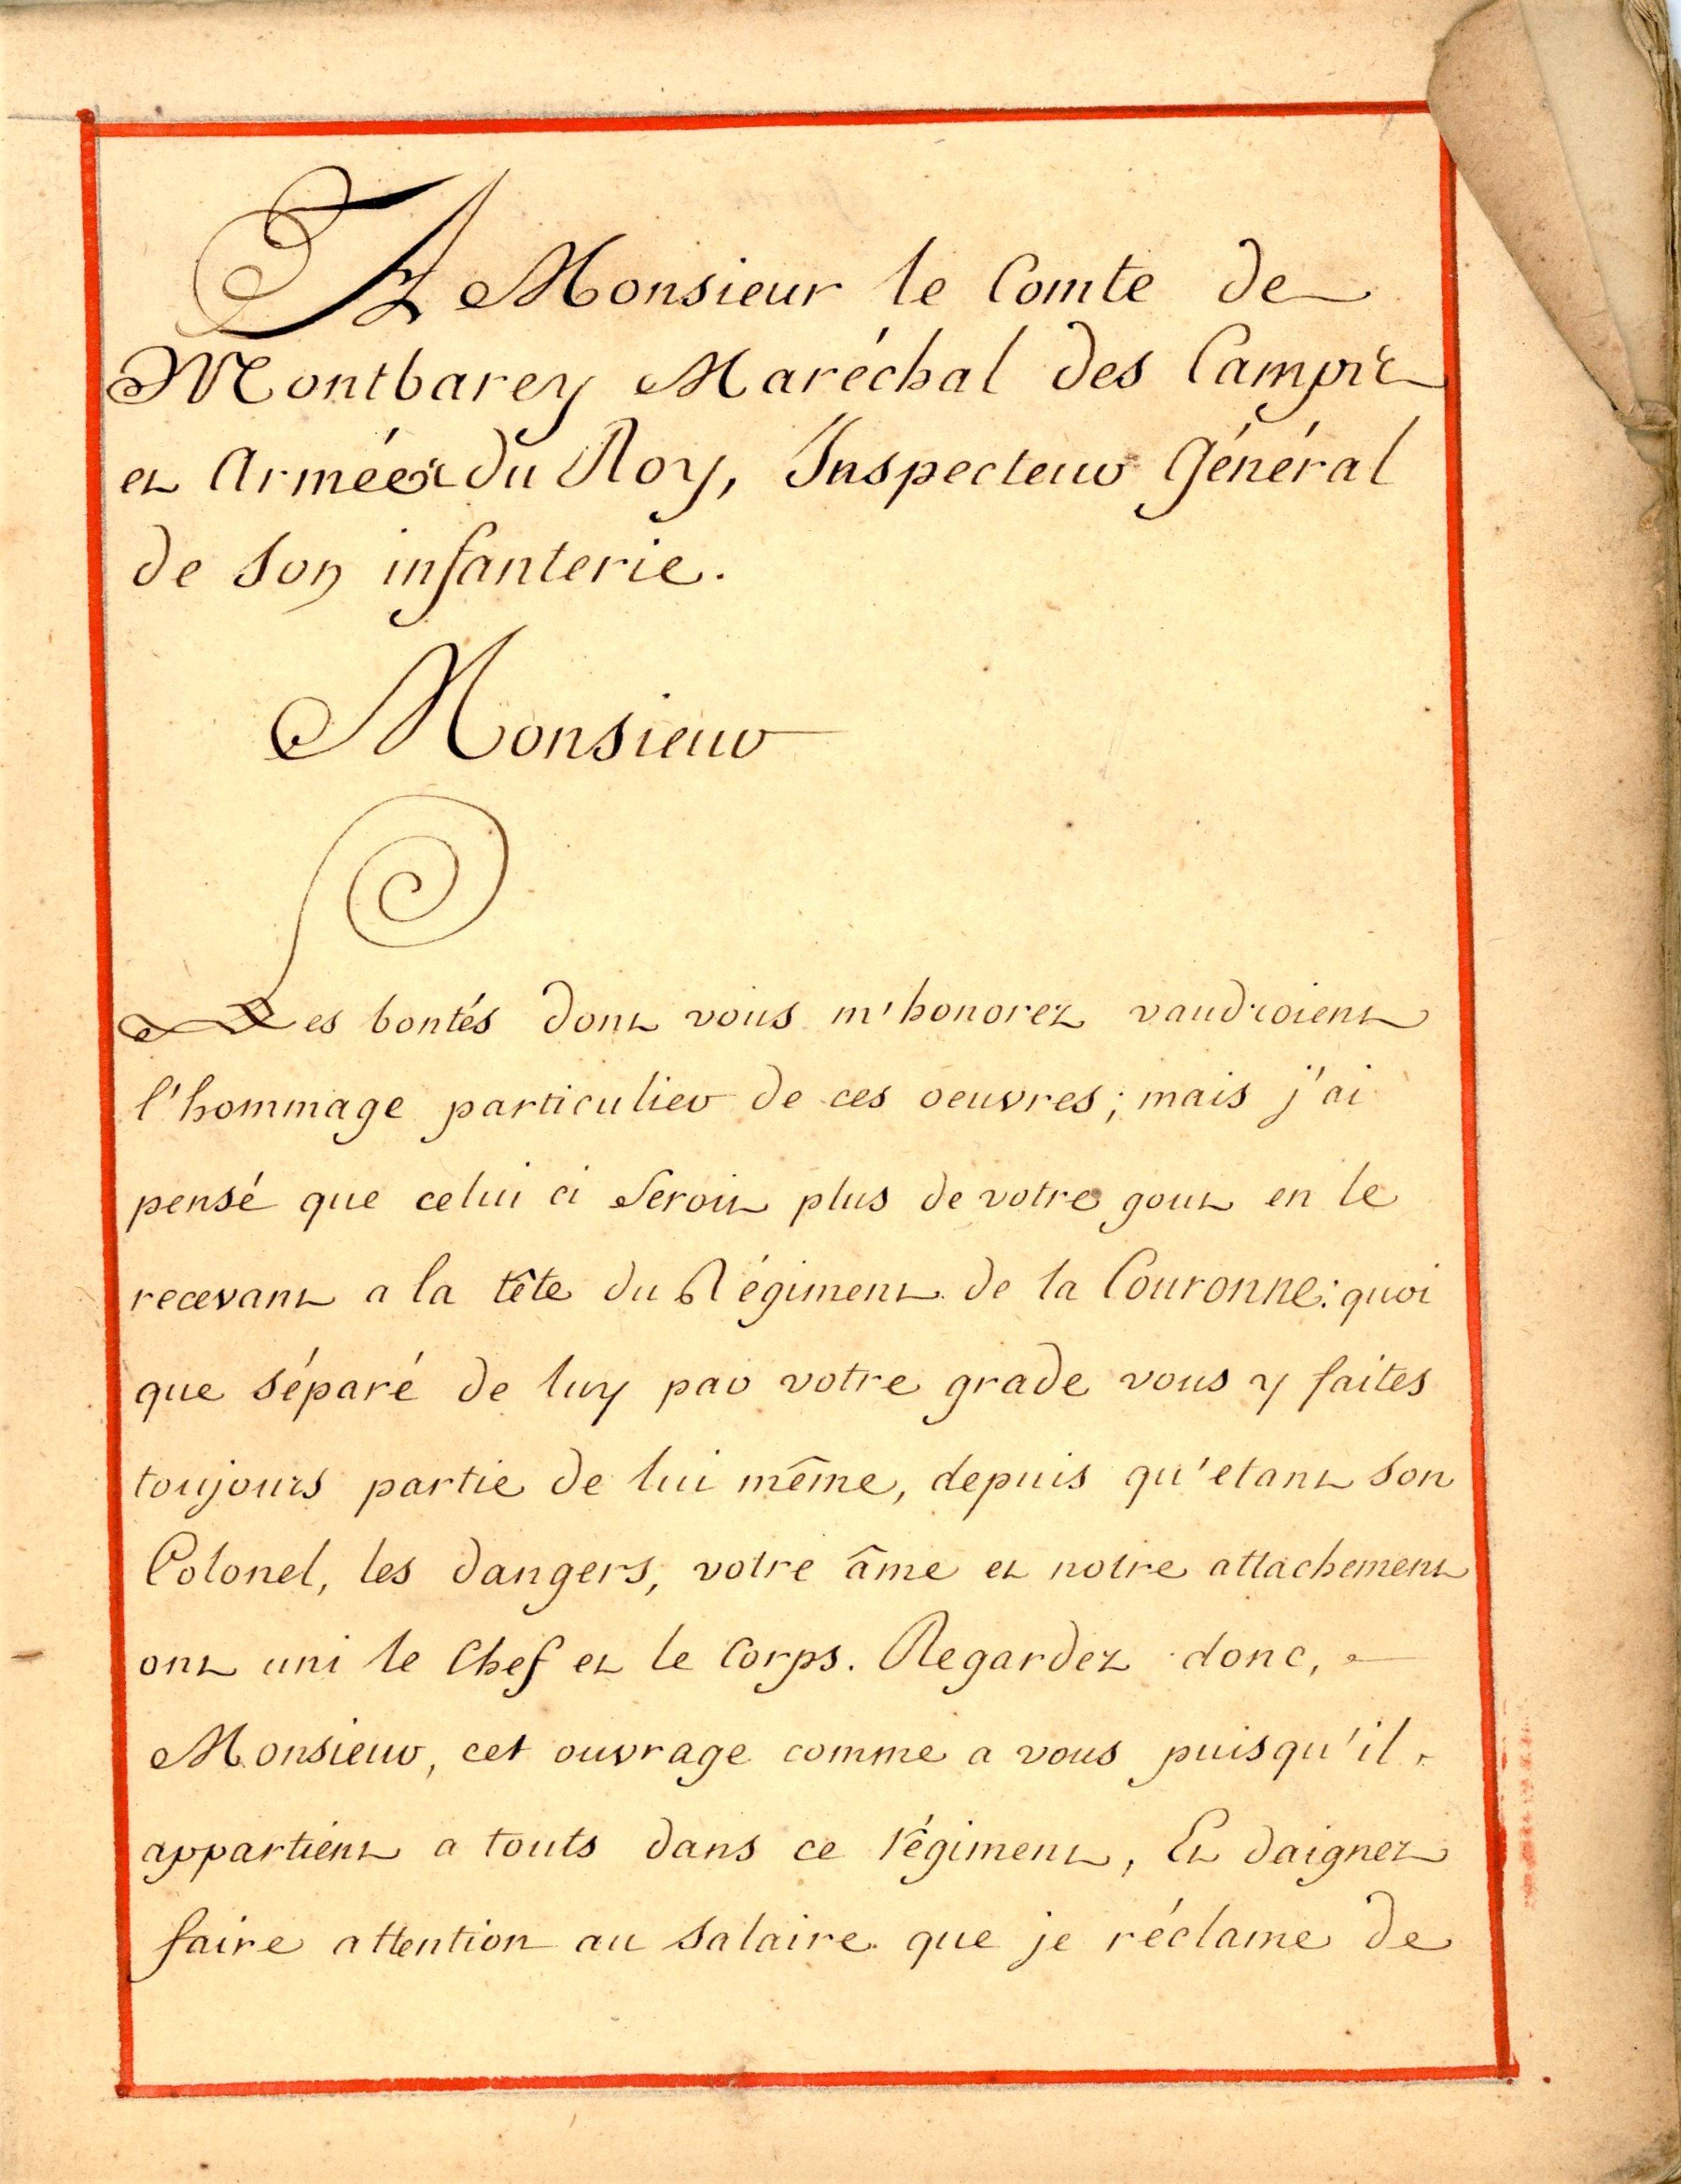 A Monsieur le Comte de
Montbarey Maréchal des Camps
et Armées du Roy, Inspecteur Général
de Son infanterie.
Monsieur
Les bontés dont vous m'honorez vaudroient
l'hommage particulier de ces oeuvres; mais j'ai
pensé que celui ci Seroit plus de votre gout en le
recevant a la tête du Régiment de la Couronne: quoi
que séparé de luy par votre grade vous y faites
toujours partie de lui même, depuis qu'etant Son
Colonel, les dangers, votre âme et notre attachement
ont uni le Chef et le Corps. Regardez donc,
Monsieur, cet ouvrage comme a vous puisqu'il
appartient a touts dans ce régiment, Et daignez
faire attention au Salaire que je réclame de